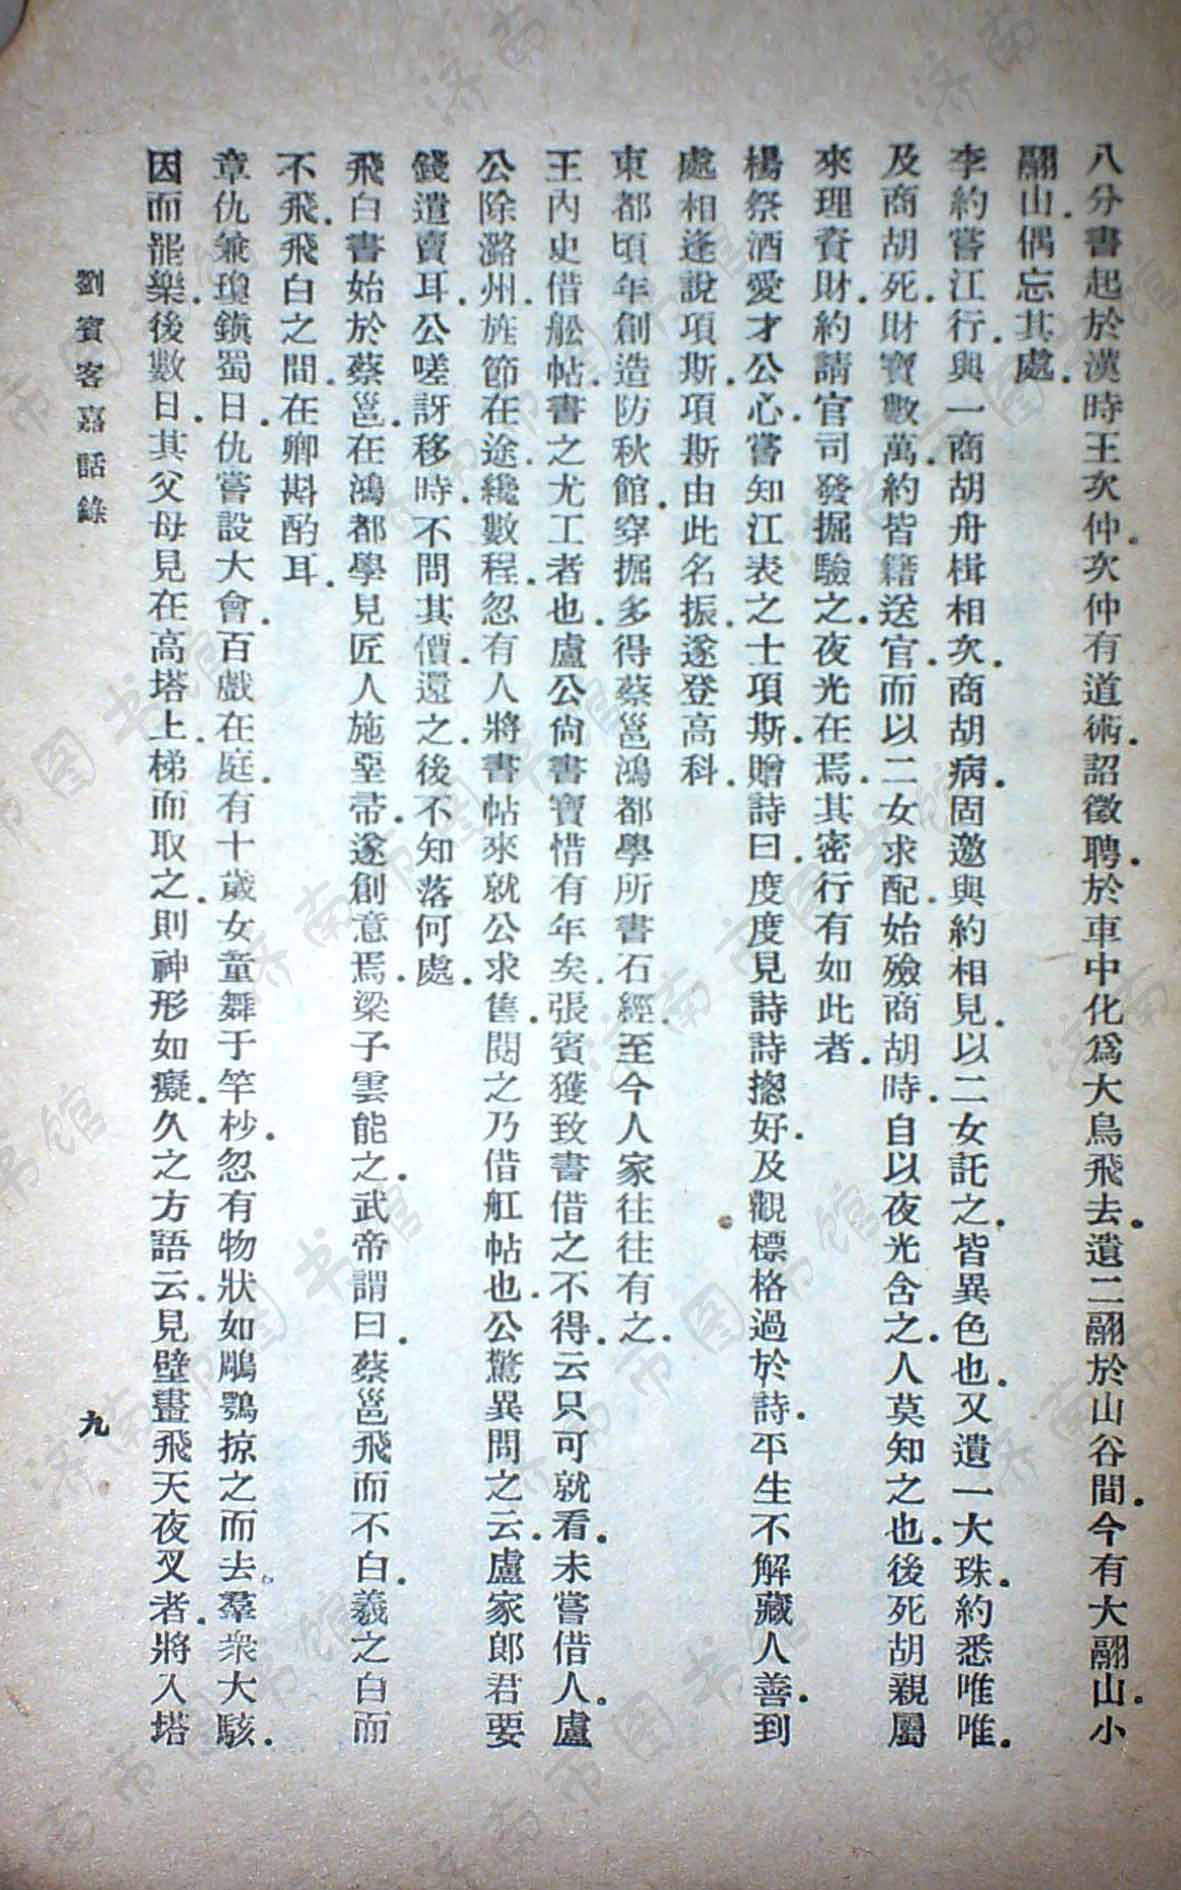 八分書起於漢時王次仲次仲有道術詔徵聘於車中化爲大鳥飛去遺二翮於山谷間今有大翮山小
翮山偶忘其處
李約嘗江行與一商胡舟楫相次商胡病固邀與約相見以二女託之皆異色也又遺一大珠約悉唯唯
及商胡死財寶數萬約皆籍送官而以二女求配始殮商胡時自以夜光含之人莫知之也後死胡親屬
來理資財約請官司發掘驗之夜光在焉其密行有如此者
楊祭酒愛才公心嘗知江表之士項斯贈詩曰度度見詩詩摠好及觀標格過於詩平生不解藏人善到
處相逢說項斯項斯由此名振遂登高科
東都頃年創造防秋館穿掘多得蔡邕鴻都學所書石經至今人家往往有之
王內史借舩帖書之尤工者也盧公尙書寶惜有年矣張賓獲致書借之不得云只可就看未嘗借人盧
公除潞州旌節在途纔數程忽有人將書帖來就公求售閱之乃借舡帖也公驚異問之云盧家郎君要
錢遣賣耳公嗟訝移時不問其價還之後不知落何處
飛白書始於蔡邕在鴻都學見匠人施堊帚遂創意焉梁子雲能之武帝謂曰蔡邕飛而不白羲之白而
不飛飛白之間在卿斟酌耳
章仇兼瓊鎭蜀日仇嘗設大會百戲在庭有十歲女童舞于竿杪忽有物狀如鵰鶚掠之而去羣衆大駭
因而罷樂後數日其父母見在高塔上梯而取之則神形如癡久之方語云見壁畫飛天夜叉者將入塔
劉賓客嘉話錄
九
济南市图书馆